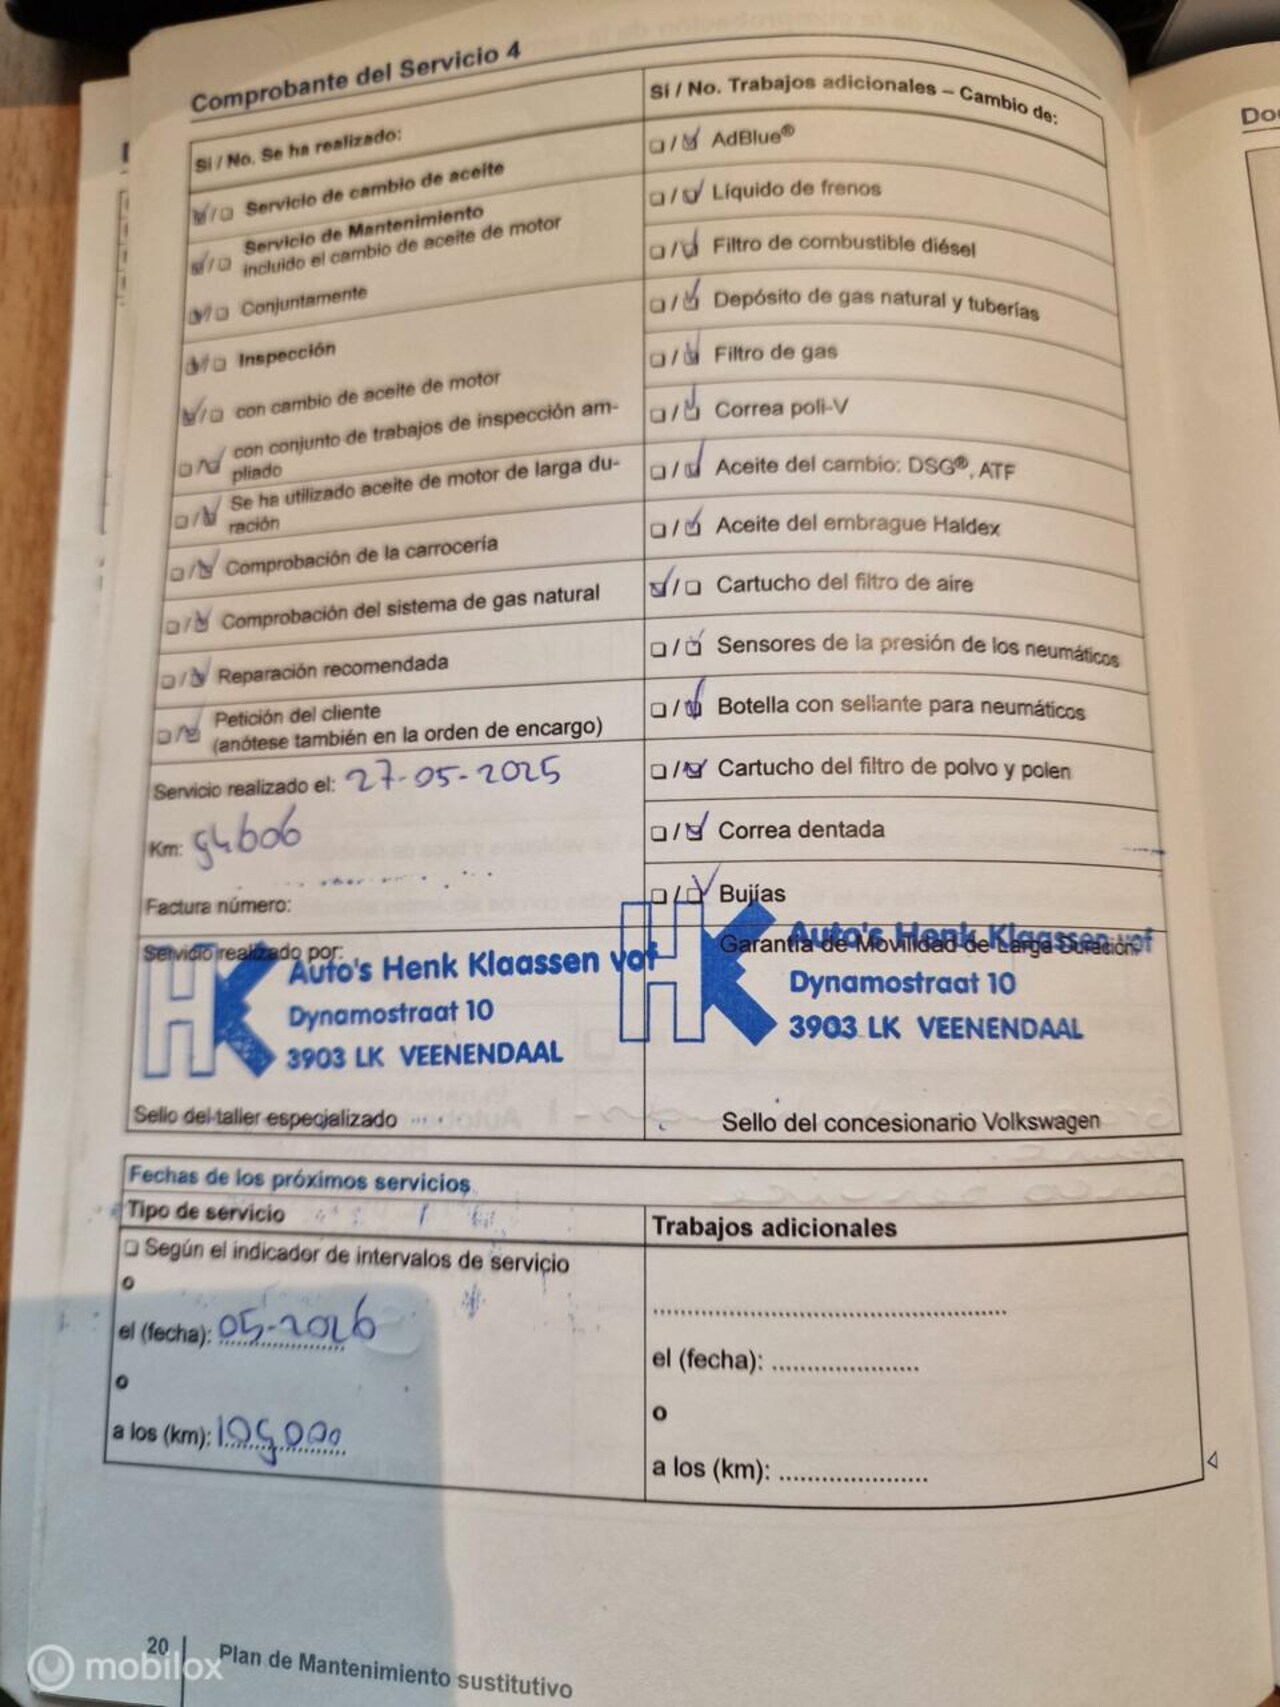 Comprobante del Servicio 4
Si / No. Se ha realizado:
Servicio de cambio de aceite
Servicio de Mantenimiento
incluido el cambio de aceite de motor
Conjuntamente
Inspección
con cambio de aceite de motor
con conjunto de trabajos de inspección am-
pliado
Se ha utilizado aceite de motor de larga du-
ración
Comprobación de la carrocería
Comprobación del sistema de gas natural
Reparación recomendada
Petición del cliente
(anótese también en la orden de encargo)
Servicio realizado el: 27-05-2025
Km: 94606
Factura número:
Servicio realizado por:
Auto's Henk Klaassen vof
Dynamostraat 10
3903 LK VEENENDAAL
Sello del taller especializado
Si / No. Trabajos adicionales – Cambio de:
AdBlue®
Líquido de frenos
Filtro de combustible diésel
Depósito de gas natural y tuberías
Filtro de gas
Correa poli-V
Aceite del cambio: DSG®, ATF
Aceite del embrague Haldex
Cartucho del filtro de aire
Sensores de la presión de los neumáticos
Botella con sellante para neumáticos
Cartucho del filtro de polvo y polen
Correa dentada
Bujías
Garantía de Movilidad de Larga Duración
Auto's Henk Klaassen vof
Dynamostraat 10
3903 LK VEENENDAAL
Sello del concesionario Volkswagen
Fechas de los próximos servicios
Tipo de servicio
Según el indicador de intervalos de servicio
o
el (fecha): 05-2026
o
a los (km): 109000
Trabajos adicionales
el (fecha):
o
a los (km):
20 Plan de Mantenimiento sustitutivo
mobilox